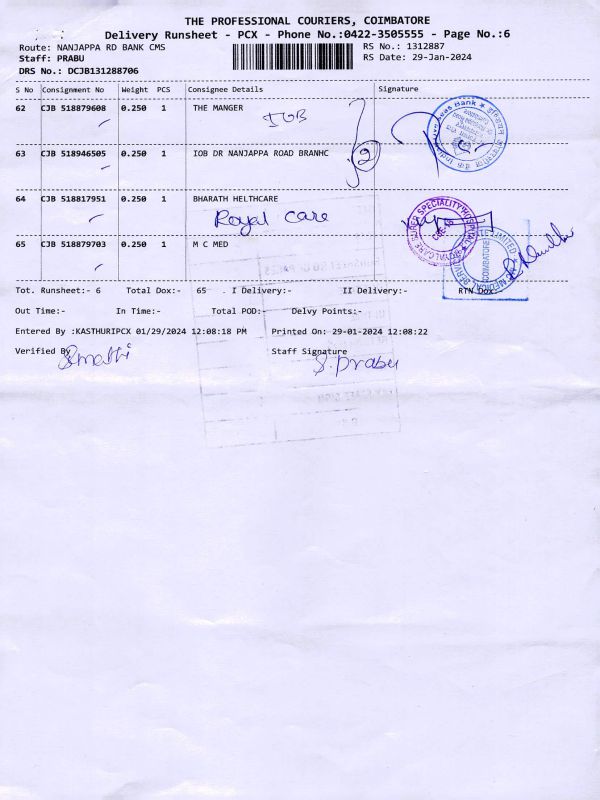 THE PROFESSIONAL COURIERS, COIMBATORE
Delivery Runsheet - PCX - Phone No.:0422-3505555 - Page No.:6
Route: NANJAPPA RD BANK CMS
RS No.: 1312887
Staff: PRABU
RS Date: 29-Jan-2024
DRS No.: DCJB131288706
S No Consignment No Weight PCS Consignee Details Signature
62 CJB 518879608 0.250 1 THE MANGER
IOB
63 CJB 518946505 0.250 1 IOB DR NANJAPPA ROAD BRANHC
2
64 CJB 518817951 0.250 1 BHARATH HELTHCARE
Royal care
65 CJB 518879703 0.250 1 M C MED
Tot. Runsheet:- 6 Total Dox:- 65 . I Delivery:- II Delivery:- RTN Dox
Out Time:- In Time:- Total POD:- Delvy Points:-
Entered By :KASTHURIPCX 01/29/2024 12:08:18 PM Printed On: 29-01-2024 12:08:22
Verified By Staff Signature
S. Prabu